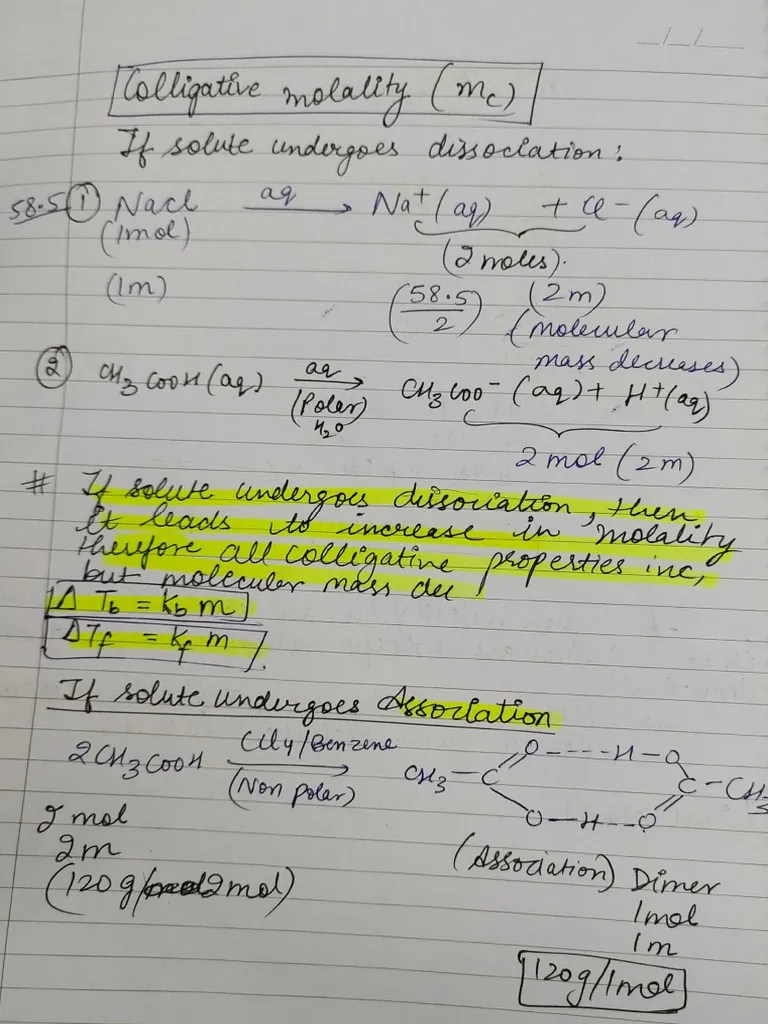 __/__/__
Colligative molality (mc)
If solute undergoes dissociation:
58.5 ① Nacl aq → Na⁺(aq) + Cl⁻(aq)
(1mol) (2 moles).
(1m) (58.5/2) (2m)
(molecular
mass decreases)
② CH3COOH(aq) aq → CH3COO⁻(aq) + H⁺(aq)
(Polar)
H2O
2 mol (2m)
# If solute undergoes dissociation, then
it leads to increase in molality
therefore all colligative properties inc,
but molecular mass dec
Δ Tb = Kb m
ΔTf = Kf m
If solute undergoes Association
2CH3COOH CCl4/Benzene → CH3-C O----H-O C-CH3
(Non polar) O-H---O
2 mol
2m
(120g/2mol) (Association) Dimer
1mol
1m
120g/1mol